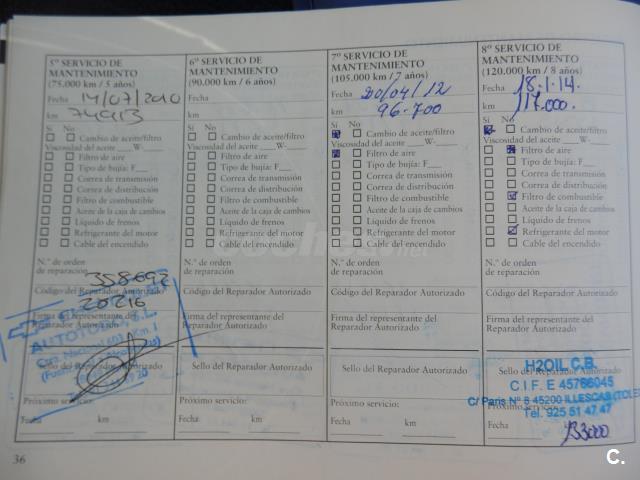 5º SERVICIO DE
MANTENIMIENTO
(75.000 km / 5 años)
Fecha 14/07/2010
km 74913
Sí No
Cambio de aceite/filtro
Viscosidad del aceite ___W-___
Filtro de aire
Tipo de bujía: F___
Correa de transmisión
Correa de distribución
Filtro de combustible
Aceite de la caja de cambios
Líquido de frenos
Refrigerante del motor
Cable del encendido
N.º de orden
de reparación 358692
Código del Reparador Autorizado
20216
Firma del representante del
Reparador Autorizado
Sello del Reparador Autorizado
Próximo servicio:
Fecha km
6º SERVICIO DE
MANTENIMIENTO
(90.000 km / 6 años)
Fecha
km
Sí No
Cambio de aceite/filtro
Viscosidad del aceite ___W-___
Filtro de aire
Tipo de bujía: F___
Correa de transmisión
Correa de distribución
Filtro de combustible
Aceite de la caja de cambios
Líquido de frenos
Refrigerante del motor
Cable del encendido
N.º de orden
de reparación
Código del Reparador Autorizado
Firma del representante del
Reparador Autorizado
Sello del Reparador Autorizado
Próximo servicio:
Fecha km
7º SERVICIO DE
MANTENIMIENTO
(105.000 km / 7 años)
Fecha 20/04/12
km 96.700
Sí No
Cambio de aceite/filtro
Viscosidad del aceite ___W-___
Filtro de aire
Tipo de bujía: F___
Correa de transmisión
Correa de distribución
Filtro de combustible
Aceite de la caja de cambios
Líquido de frenos
Refrigerante del motor
Cable del encendido
N.º de orden
de reparación
Código del Reparador Autorizado
Firma del representante del
Reparador Autorizado
Sello del Reparador Autorizado
Próximo servicio:
Fecha km
8º SERVICIO DE
MANTENIMIENTO
(120.000 km / 8 años)
Fecha 18.1.14.
km 117.000.
Sí No
Cambio de aceite/filtro
Viscosidad del aceite ___W-___
Filtro de aire
Tipo de bujía: F___
Correa de transmisión
Correa de distribución
Filtro de combustible
Aceite de la caja de cambios
Líquido de frenos
Refrigerante del motor
Cable del encendido
N.º de orden
de reparación
Código del Reparador Autorizado
Firma del representante del
Reparador Autorizado
Sello del Reparador Autorizado
H2OIL C.B.
C.I.F. E 45766045
C/ Paris Nº 8 45200 ILLESCAS (TOLE
Tel. 925 51 47 47
Próximo servicio:
Fecha km
133000
36
coches.net
C.